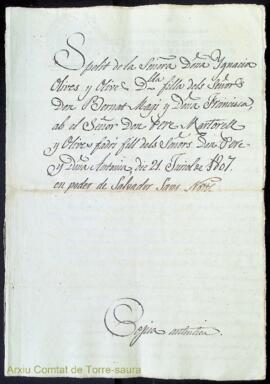 Spolit de la Señora Dña Ignacia
Olives y Olive Dlla filla dels Señors
Don Bernat Magí y Dña Francisca
ab el Señor Don Pere Martorell
y Olives fadri fill dels Señors Don Pere
y Dña Antonia die 21 1807.
en poder de Salvador Nott.
Copia autentica.
Arxiu Comtat de Torre-saura